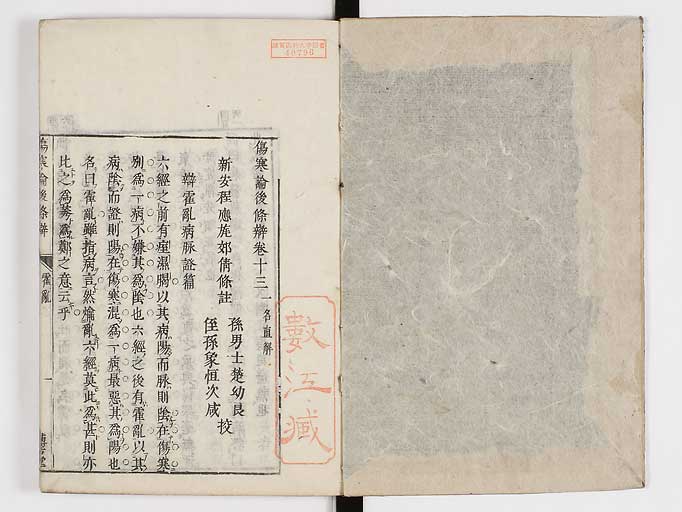 傷寒論後條辨卷十三 一名直解
新安程應旄郊倩條註
孫男士楚幼良
侄孫象恒次咸 挍
辯霍亂病脉證篇
六經之前有痙濕暍以其病陽而脉則陰在傷寒
別爲一病不嫌其爲陰也六經之後有霍亂以其
病陰而證則陽在傷寒混爲一病最惡其爲陽也
名曰霍亂雖指病言然淆亂六經莫此爲甚則亦
比之爲莠爲鄭之意云乎
傷寒論後條辨
霍亂
一
數江藏
40796